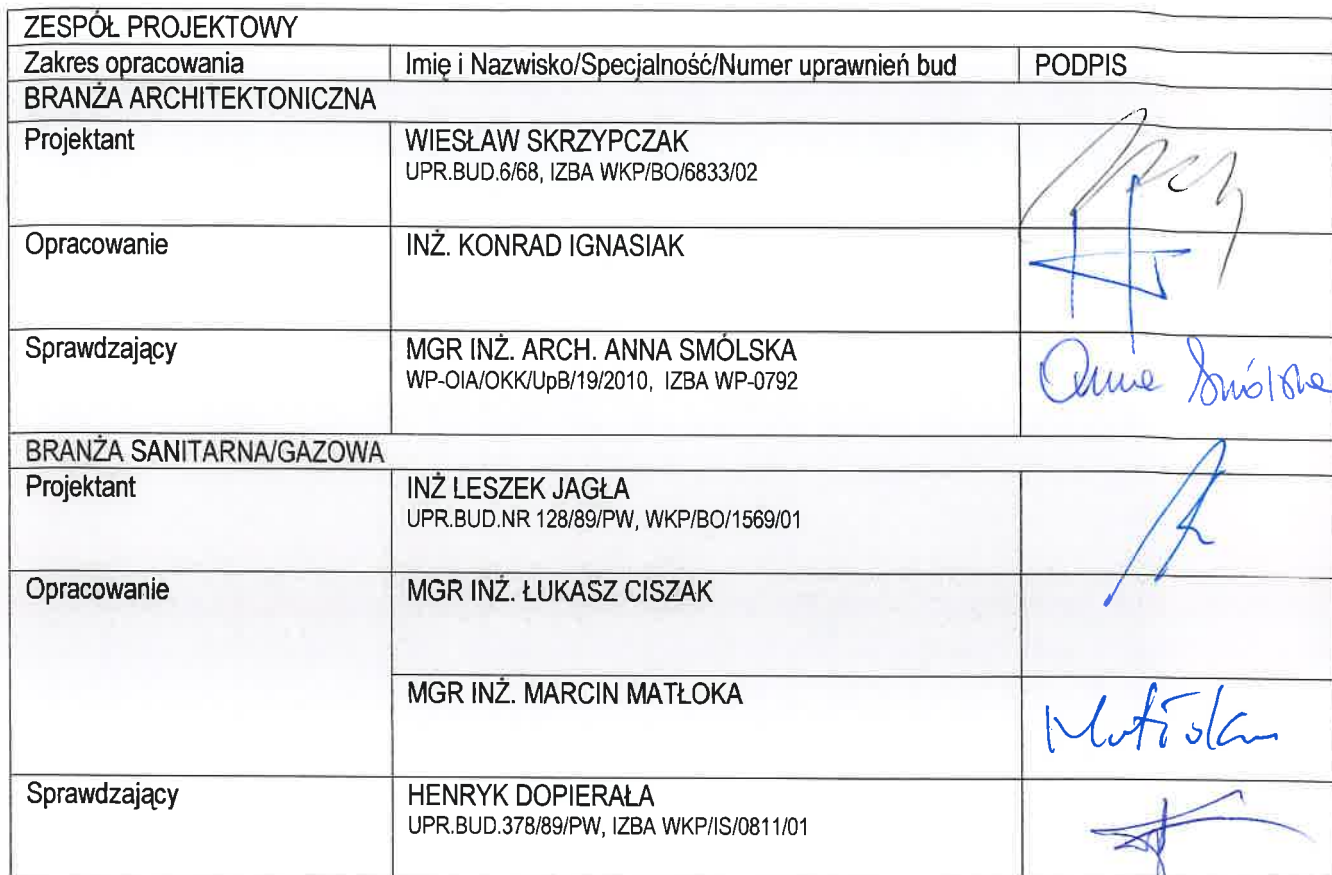 ZESPÓŁ PROJEKTOWY
Zakres opracowania Imię i Nazwisko/Specjalność/Numer uprawnień bud PODPIS
BRANŻA ARCHITEKTONICZNA
Projektant WIESŁAW SKRZYPCZAK
UPR.BUD.6/68, IZBA WKP/BO/6833/02
Opracowanie INŻ. KONRAD IGNASIAK
Sprawdzający MGR INŻ. ARCH. ANNA SMÓLSKA
WP-OIA/OKK/UpB/19/2010, IZBA WP-0792
Anna Smólska
BRANŻA SANITARNA/GAZOWA
Projektant INŻ LESZEK JAGŁA
UPR.BUD.NR 128/89/PW, WKP/BO/1569/01
Opracowanie MGR INŻ. ŁUKASZ CISZAK
MGR INŻ. MARCIN MATŁOKA
Matłoka
Sprawdzający HENRYK DOPIERAŁA
UPR.BUD.378/89/PW, IZBA WKP/IS/0811/01